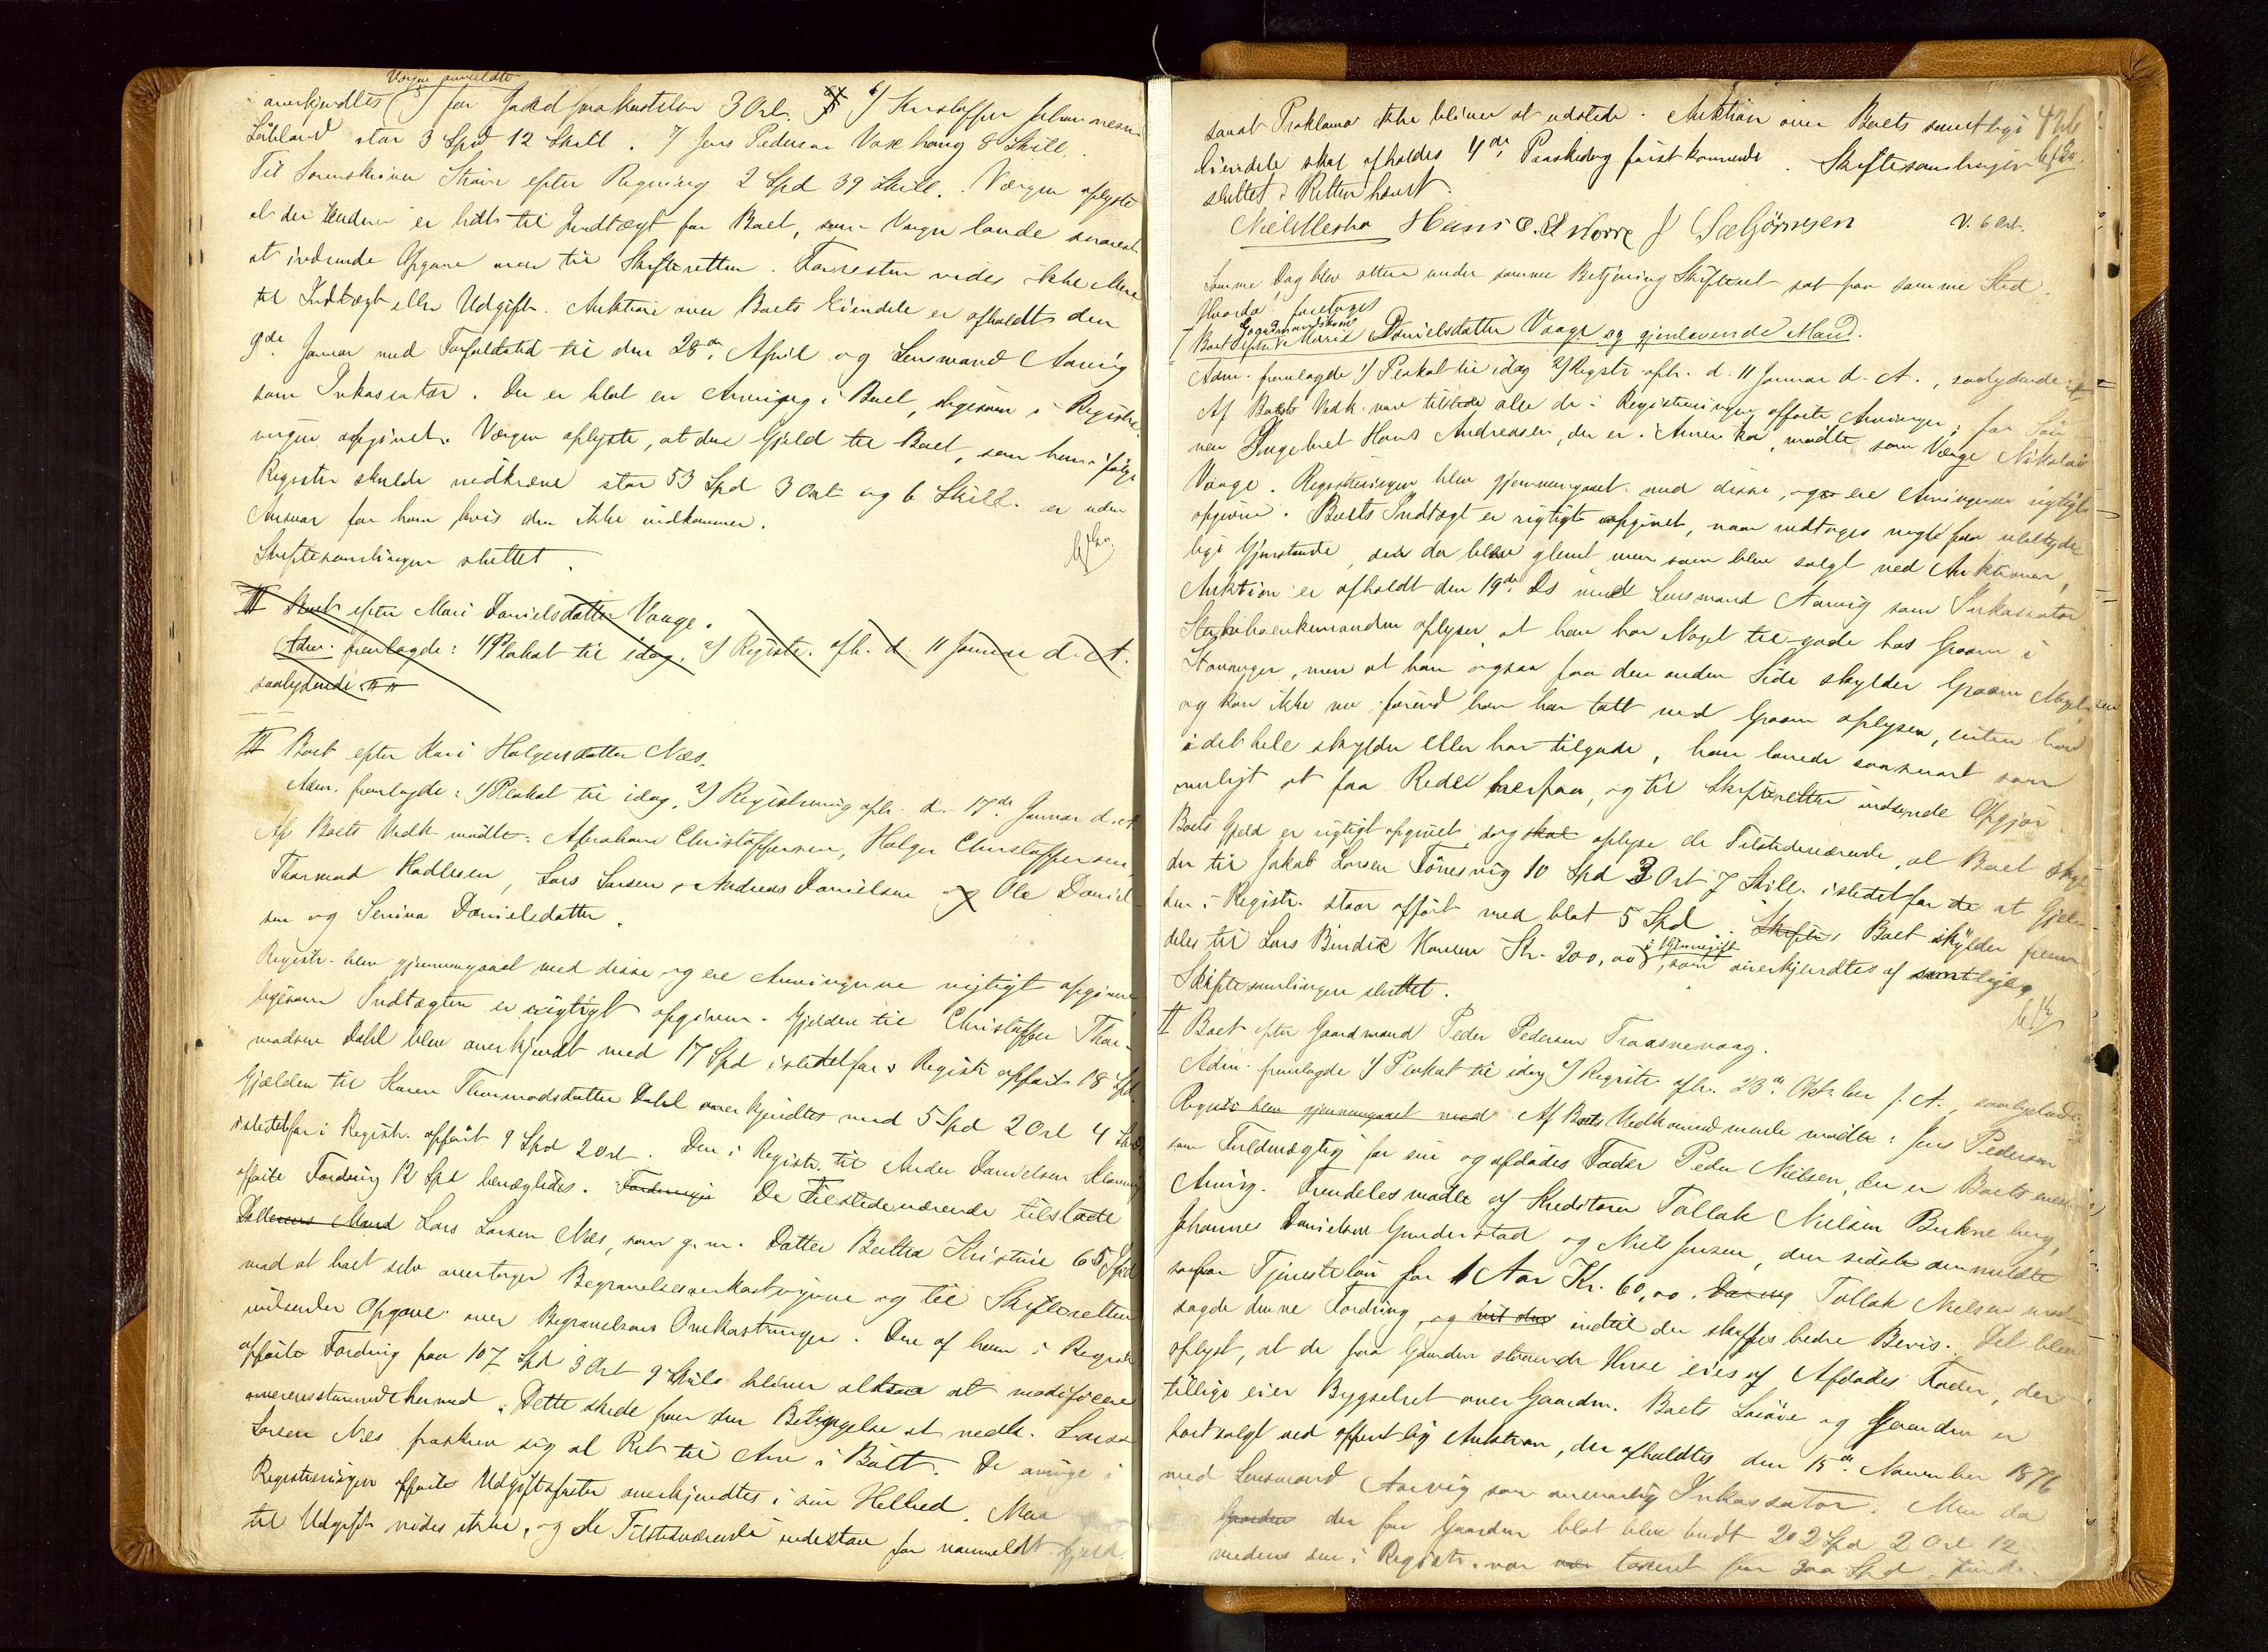 Værgen anmeldte
anerkjendtes for Jordpaakastelse 3 Ort. 6) Kristoffer Johannesen
Lølland stor 3 Spd 12 Skill. 7) Jens Pedersen Voxhaug 8 Skill.
Til Sorenskriver efter Regning 2 Spd 39 Skill. Værgen oplyste
at der er til Indtægt for Boet, som Værgen lovede snarest
at indsende Opgave over til Skifteretten. Forresten vides ikke Mere
til Indtægt eller Udgift. Auktion over Boets Eiendele er afholdt den
9de Januar med Forfaldstid til den 28de April og Lensmand Aarvig
som Inkassator. Der er blot en Arving i Boet, ligesom i Registre-
ringen opgivet. Værgen oplyste, at den Gjeld til Boet, som han ifølge
Registr. skulde vedkende stor 53 Spd 3 Ort og 6 Skill. er uden
Ansvar for ham hvis den ikke indkommer.
Skiftesamlingen sluttet.
II Boet efter Mari Danielsdatter Vaage.
Adm. fremlagde: 1) Plakat til idag, 2) Registr. afh. d. 11 Januar d. A.
saalydende
II Boet efter Kari Holgersdatter Næs.
Adm. fremlagde: 1) Plakat til idag, 2) Registrering afh. d. 17de Januar d. A.
Af Boets Vedk. mødte: Abraham Christoffersen, Holger Christoffersen,
Thormod Hadlesen, Lars Larsen, Andreas Danielsen og Ole Daniel-
sen og Serina Danielsdatter.
Registr. blev gjennemgaaet med disse og ere Arvingerne rigtigt opgivne
ligesom Indtægten er rigtigt opgiven. Gjelden til Christoffer Thor-
modsen Dahl blev anerkjendt med 17 Spd istedetfor i Registr. opført 18 Spd.
Gjælden til Karen Thormodsdatter Dahl anerkjendtes med 5 Spd 2 Ort 4 Skill
istedetfor i Registr. opført 9 Spd 2 Ort. Den i Registr. til Anders Danielsen
opførte Fordring 12 Spd benægtedes. Fordringen De Tilstedeværende tilstode
Mand Lars Larsen Næs, som g. m. Datter Bertha Kristine 65 Spd
mod at haet selv overtager Begravelsesomkostningerne og til Skifteretten
indsender Opgave over Begravelsens Omkostninger. Den af ham i Registr.
opførte Fordring paa 107 Spd 3 Ort 9 Skill. bliver altsaa at modificere
overensstemmende hermed. Dette skede paa den Betingelse at nedk. Lars
Larsen Næs fraskrev sig al Ret til Arv i Boet. De øvrige i
Registreringen opførte Udgiftsposter anerkjendtes i sin Helhed. Mere
til Udgift vides ikke, og de Tilstedeværende indestaa for uanmeldt Gjeld.
samt Proklama ikke bliver at udstede. Auktion over Boets samtlige
Eiendele skal afholdes 4de Paaskedag førstkommende. Skiftesamlingen
sluttet. Retten hævet.
Hans
V. 6 Ort.
Samme Dag blev atter under samme Betjening Skifteret sat paa samme Sted.
Hvorda foretoges
I Boet efter Gaardmandskone Marie Danielsdatter Vaage og gjenlevende Mand.
Adm. fremlagde 1) Plakat til idag 2) Registr. afh. d. 11 Januar d. A., saalydende
Af Boets Vedk. var tilstede alle de i Registreringen opførte Arvinger; for Søn
nen Ingebret Hans Andreasen, der er i Amerika, mødte som Værge Nikolai
Vaage. Registreringen blev gjennemgaaet med disse, og ere Arvingerne rigtigt
opgivne. Boets Indtægt er rigtigt opgivet, naar undtages nogle faa ubetyde
lige Gjenstande, som da blev glemt men som blev solgt ved Auktionen.
Auktion er afholdt den 19de Ds med Lensmand Aarvig som Inkassator
Stesboenkemanden oplyser at han har Noget til gode hos Graam i
Stavanger, men at han ogsaa paa den anden Side skylder Graam Noget,
og kan ikke nu førend han har talt med Graam oplyse, enten han
i det hele skylder eller har tilgode, han lovede saasnart som
muligt at faa Rede herpaa, og til Skifteretten indsende Opgjør
Boets Gjeld er rigtigt opgivet, dog skal oplyse de Tilstedeværende, at Boet skyl-
der til Jakob Larsen Tønesvig 10 Spd 3 Ort 7 Skill. istedetfor de at Gjel-
den i Registr. staar opført med blot 5 Spd. Skifte Boet skylder frem-
deles til Lars Bendix Hansen Kr. 200,00, som anerkjendtes af samtlige.
Skiftesamlingen sluttet.
II Boet efter Gaardmand Peder Pedersen Traasnevaag.
Adm. fremlagde 1) Plakat til idag 2) Registr. afh. 23de Oktober f. A., saalydende
Registr. blev gjennemgaaet med Af Boets Vedkommende mødte: Jens Pedersen
som Fuldmægtig for sin og afdødes Fader Peder Nielsen, der er Boets eneste
Arving. Fremdeles mødte af Kreditorer Tollak Nielsen Bukneberg,
Johannes Danielsen Gunderstad og Niels Jensen, den sidste anmeldte
Tjenesteløn for 1 Aar Kr. 60,00. Tollak Nielsen mod-
sagde denne Fordring, og indtil der skaffes bedre Bevis. Det blev
oplyst, at de paa Gaarden staaende Huse eies af Afdødes Fader, der
tillige eier Bygselret over Gaarden. Boets Løsøre og Gaarden er
bortsolgt ved offentlig Auktion, der afholdtes den 15de November 1876
med Lensmand Aarvig som ansvarlig Inkassator. Men da
Gaarden der for Gaarden blot blev budt 202 Spd 2 Ort 12
medens den i Registr. var taxeret for 300 Spd.